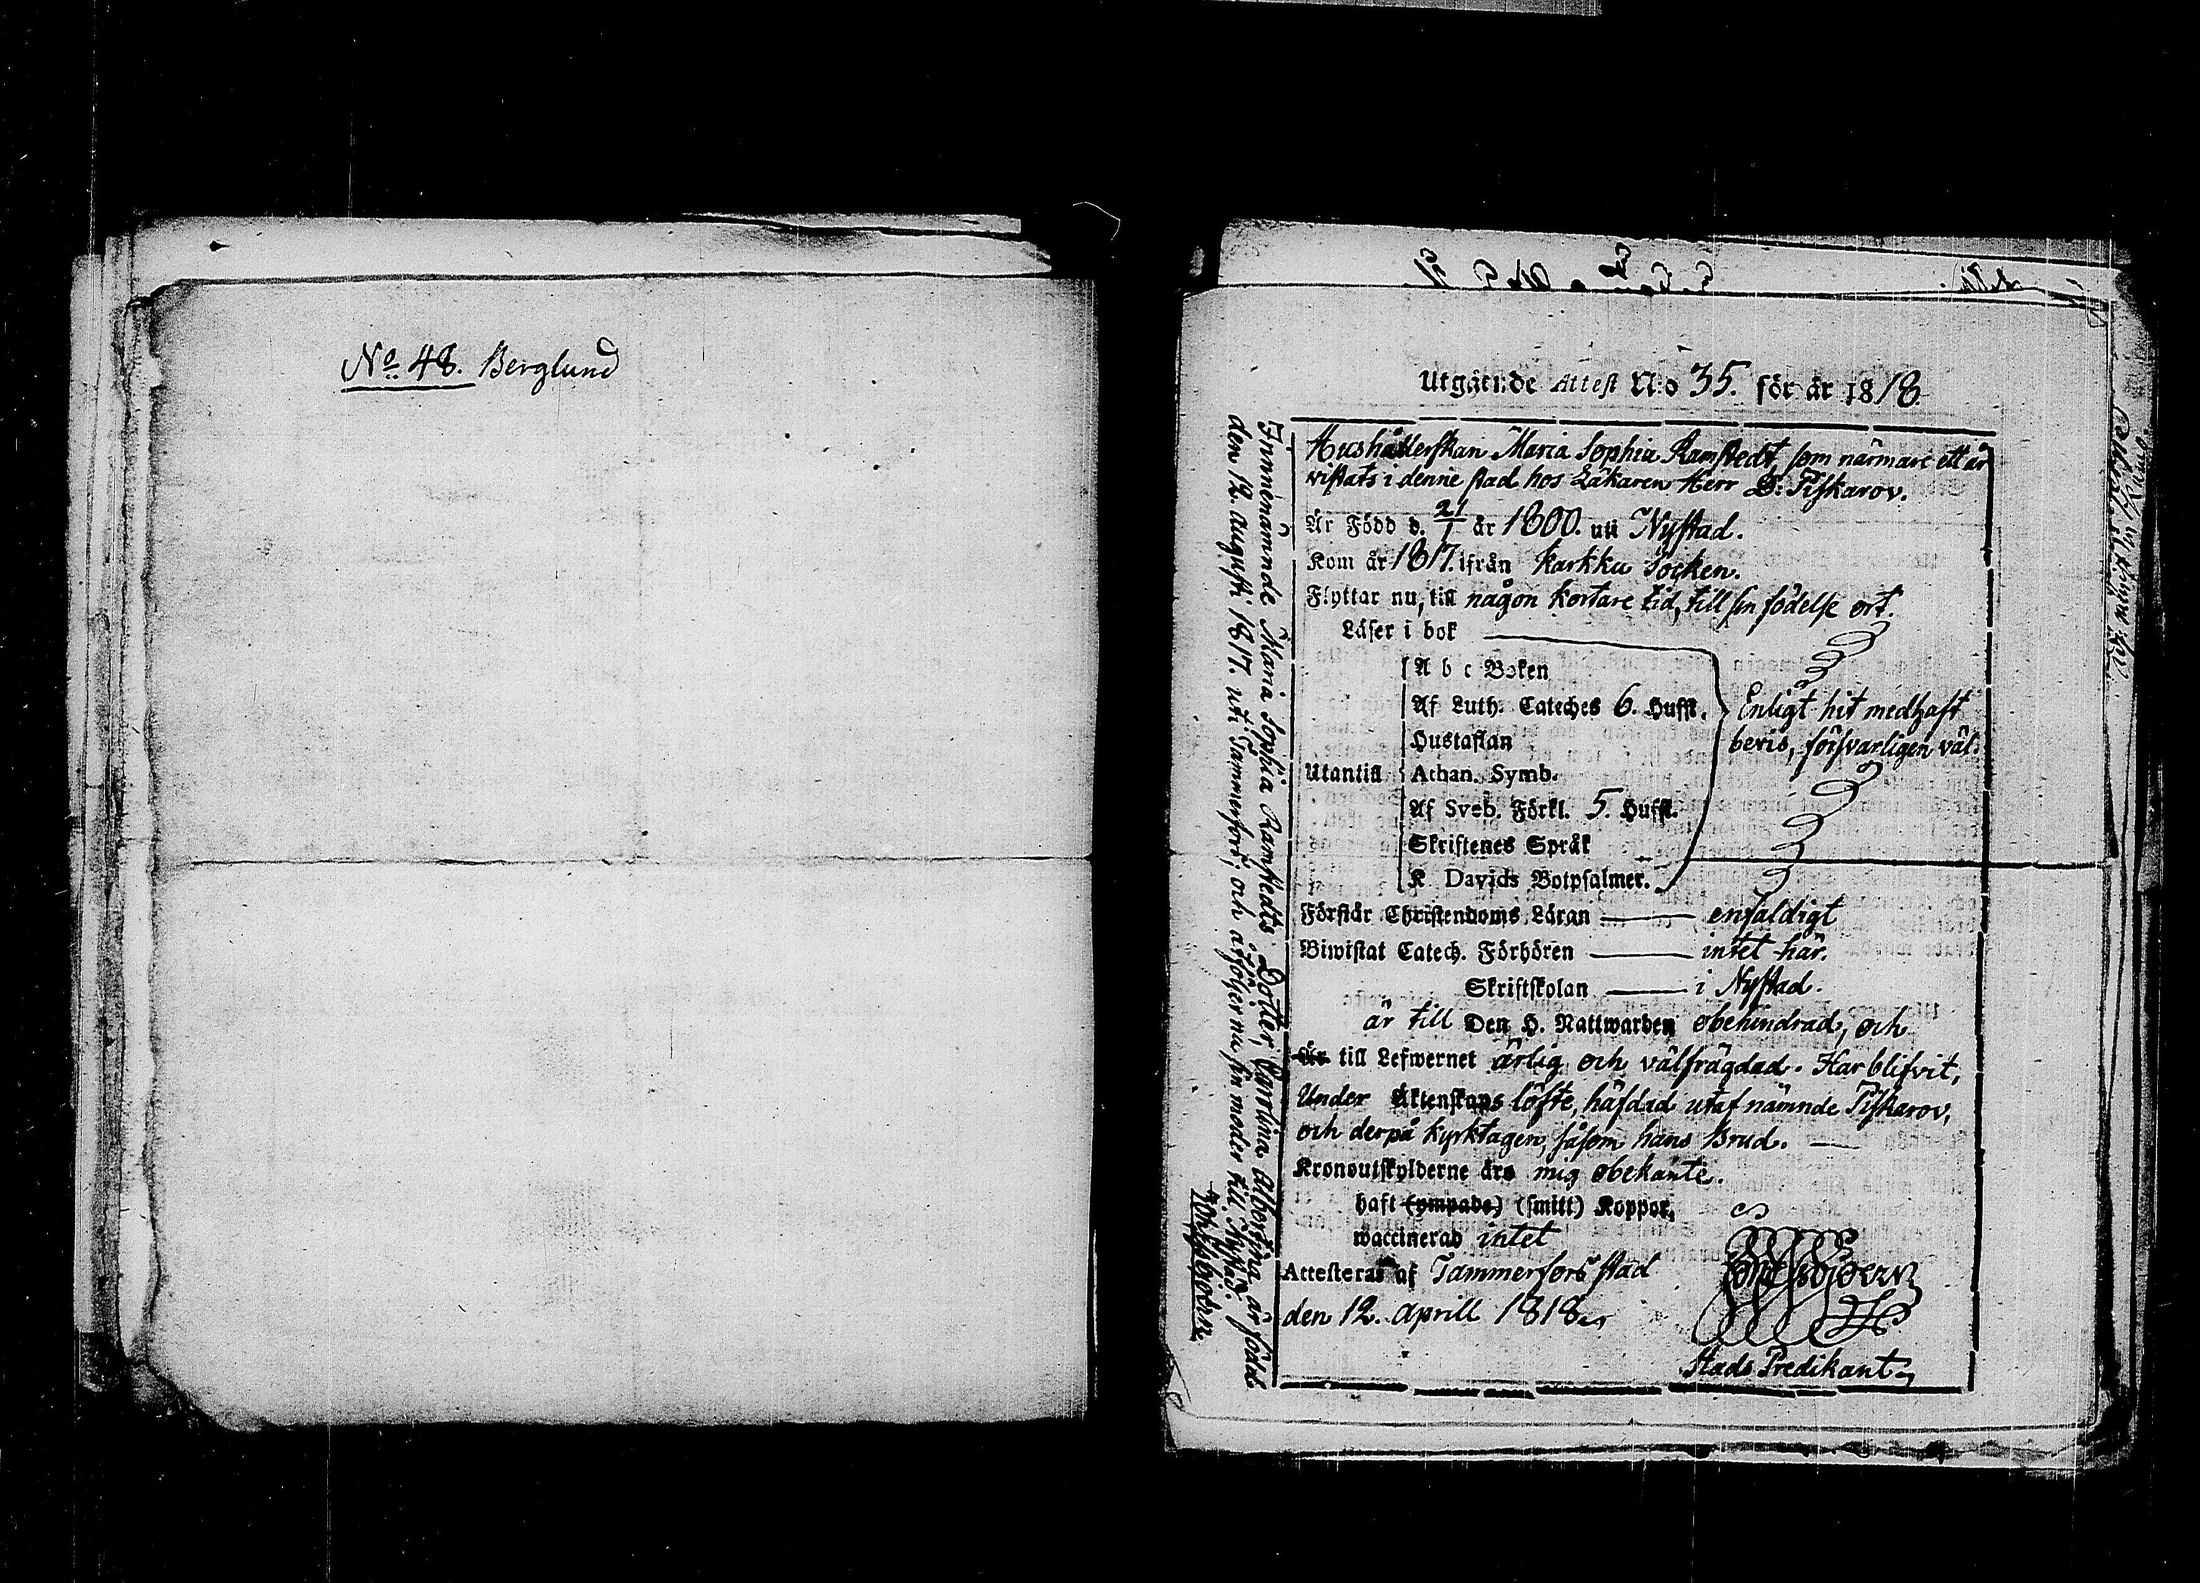 No. 48. Berglund
Utgående Attest N:o 35. för år 1818
Hushållerskan Maria Sophia Ramstedt, som närmare ett år
vistats i denne stad hos Läkaren Herr D: Piskarov.
Är Född d. 21/1 år 1800. uti Nystad.
Kom år 1817. ifrån Karkku Socken.
Flyttar nu, till någon kortare tid, till sin födelse ort.
Läser i bok
A b c Boken
Af Luth. Cateches 6. Huffst. Enligt hit medhaft
Hustaflan bevis, försvarligen väl.
Utantill Athan. Symb.
Af Sveb. Förkl. 5. Huffst.
Skriftenes Språk
K Davids Botpsalmer.
Förstår Christendoms Läran enfaldigt
Biwistat Catech. Förhören intet här.
Skriftskolan i Nystad.
är till Den H. Nattwarden obehindrad, och
Är till Lefwernet ärlig och välfrägdad. Har blifvit,
Under Äktenskaps löfte, häfdad utaf nämnde Piskarov,
och derpå kyrktagen, såsom hans Brud.
Kronoutskylderne äro mig obekante.
haft (ympade) (smitt) Koppor,
waccinerad intet
Attesteras af Tammerfors stad
den 12. Aprill 1818
Stads Predikant
Innenämnde Maria Sophia Ramstedts Dotter, Carolina Albertina är född
den 12. Augusti 1817. uti Tammerfors, och åtföljer nu sin moder till Nystad.